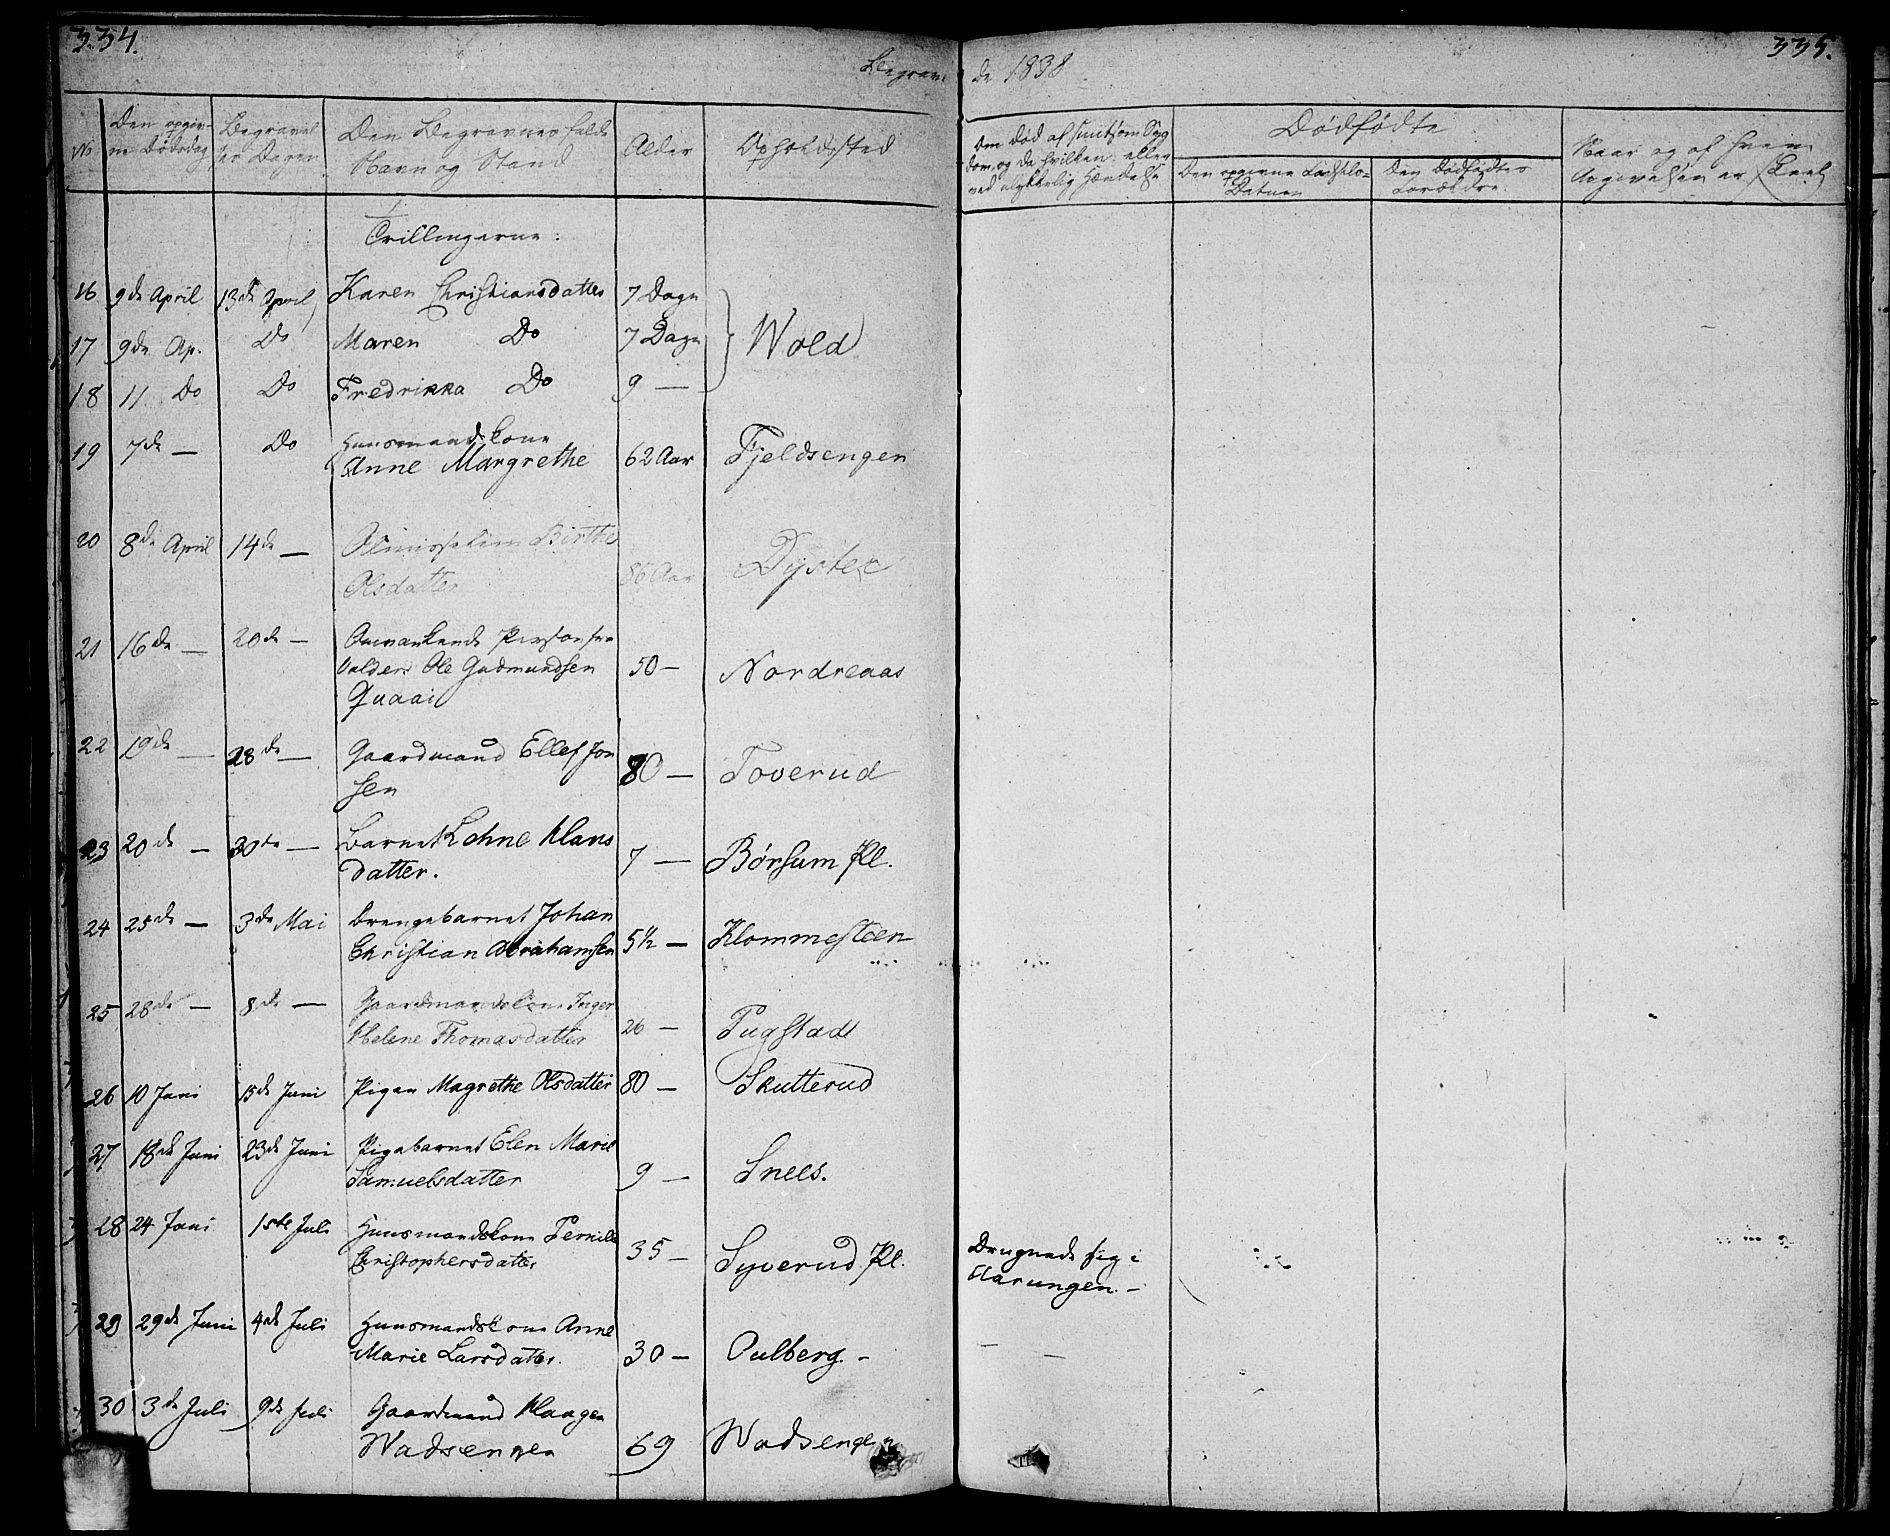 334.
Begrav-
de 1838
335.
No
Den opgiv-
ne Dødsdag
Begravel
ses Dagen
Den Begravnes fulde
Navn og Stand
Alder
Opholdssted
Om død af smitsom Syg
dom og da hvilken: eller
ved ulykkelig Hændelse
Dødfødte
Den opgivne Fødsels-
Datum
Den Dødfødtes
Forældre.
Naar og af hvem
Angivelsen er skeet
Trillingerne:
16 9de April 13de April Karen Christiansdatter 7 Dage
17 9de Ap. Do Maren Do 7 Dage Wold
18 11 Do Do Fredrikka Do 9 —
19 7de — Do Huusmandskone
Anne Margrethe 62 Aar Fjeldsengen
20 8de April 14de — Almisselem Birthe
Olsdatter 86 Aar Dyster
21 16de — 20de — Omvankende Person fra
Valders Ole Gudmundsen 50 — Nordreaas
Quaai
22 19de — 28de — Gaardmand Ellef Jon
sen 80 — Toverud
23 20de — 30de — Barnet Lehne Hans
datter. 7 — Børsum Pl.
24 25de — 3de Mai Drengebarnet Johan
Christian Abrahamsen 5½ — Klommesteen
25 28de — 8de — Gaardmandskone Inger
Helene Thomasdatter 26 — Pugstad
26 10 Juni 15de Juni Pigen Magrethe Olsdatter 80 — Skutterud
27 18de Juni 23de Juni Pigebarnet Elen Marie
Samuelsdatter 9 — Snees.
28 24 Juni 1ste Juli Huusmandskone Pernille
Christophersdatter 35 — Syverud Pl. Druknede sig i
Aarungen. —
29 29de Juni 4de Juli Huusmandskone Anne
Marie Larsdatter. 30 — Oulberg. —
30 3de Juli 9de Juli Gaardmand Haagen
Wadsengen 69 Wadsengen